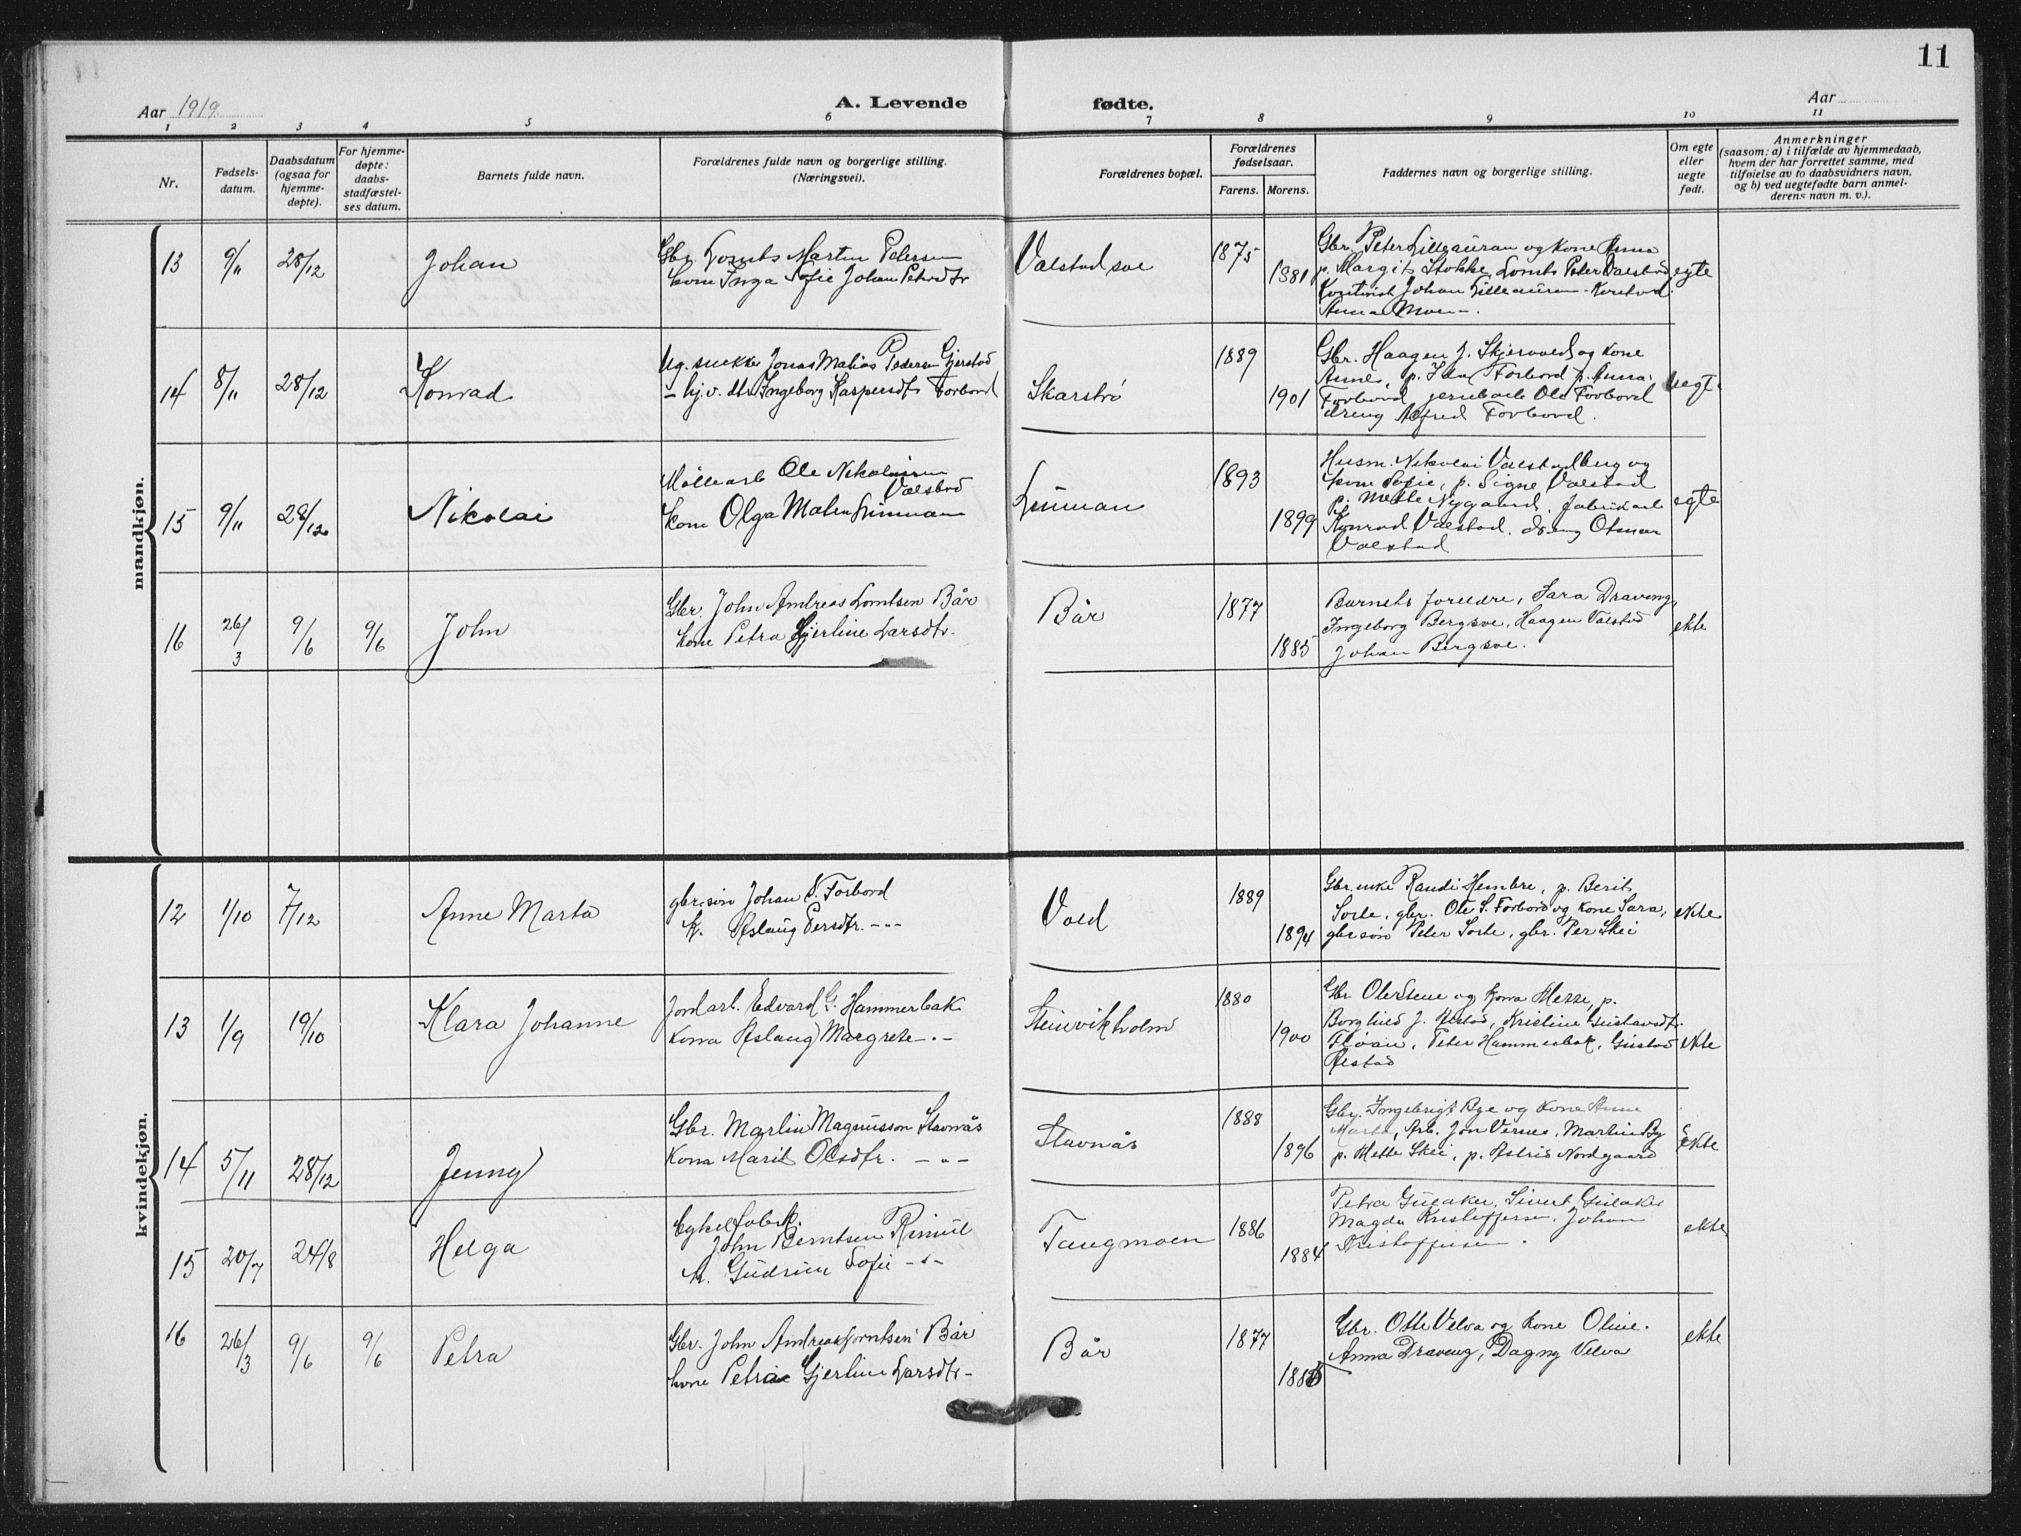 11
Aar 1919
A. Levende fødte.
Aar
1 2 3 4 5 6 7 8 9 10 11
Nr.
Fødsels-
datum.
Daabsdatum
(ogsaa for
hjemme-
døpte).
For hjemme-
døpte:
daabs-
stadfæstel-
ses datum.
Barnets fulde navn.
Forældrenes fulde navn og borgerlige stilling.
(Næringsvei).
Forældrenes bopæl.
Forældrenes
fødselsaar.
Farens. Morens.
Faddernes navn og borgerlige stilling.
Om egte
eller
uegte
født.
Anmerkninger
(saasom: a) i tilfælde av hjemmedaab,
hvem der har forrettet samme, med
tilføielse av to daabsvidners navn,
og b) ved uegtefødte barn anmel-
derens navn m. v.).
mandkjøn.
13 9/11 28/12 Johan
Gbr. Lornts Martin Petersen
kone Inga Sofie Johan Petersdtr
Valstadsve 1875 1881
Gbr. Peter Lilleauran og kone Anna
p. Margit Stokke, Lornts Peter Valstad
Johan Lilleauran
Anna Moen.
egte
14 8/11 28/12 Konrad
Ug. snekker Jonas Matias Pedersen Gjerstad
hj. v. dtr Ingeborg Kaspersdtr Forbord
Skarstrø 1889 1901
Gbr. Haagen J. Skjervold og kone
Anne, p. Ida Forbord p. Anna
Forbord, jernbarb Ole Forbord
dreng Alfred Forbord.
uegt.
15 9/11 28/12 Nikolai
Møllearb Ole Nikolaisen
Valstad
kone Olga Malen Linman
Linman 1893 1899
Husm. Nikolai Valstadberg og
kone Sofie, p. Signe Valstad
p. Mette Nygaard, fabrikarb
Konrad Valstad, dreng Otmar
Valstad
egte
16 26/3 9/6 9/6 John
Gbr John Andreas Lorntsen Bår
kone Petra Gjertine Larsdtr.
Bår 1877 1885
Barnets foreldre, Sara Draveng,
Ingeborg Bergsve, Haagen Valstad
Johan Bergsve.
ekte
kvindekjøn.
12 1/10 7/12 Anne Marta
gbr.søn Johan O. Forbord
k. Aslaug Persdtr. -"-
Vold 1889 1894
Gbr.enke Randi Hembre, p. Berit
Sorte, gbr. Ole S. Forbord og kone Sara,
gbr.søn Peter Sorte, gbr. Per Skei
ekte
13 1/9 19/10 Klara Johanne
Jordarb. Edvard G. Hammerbak
kona Aslaug Margrete -"-
Steinvikholm 1880 1900
Gbr Ole Stene og kona Messe, p.
Borghild J. Alstad, Kristine Gustavsdtr.
Floan, Peter Hammerbak, Gustad
Alstad
ekte
14 5/11 28/12 Jenny
Gbr. Martin Magnusson Stavnås
kona Marit Olsdtr. -"-
Stavnås 1888 1896
Gbr. Ingebrigt Bye og kone Anne
Marta, Arb. Jon Vernes, Martin By
p. Mette Skei, p. Astrid Nordgaard
ekte
15 20/7 24/8 Helga
Cykelfabrk.
John Berntsen Rimul
k. Gudrun Sofie -"-
Tangmoen 1886 1884
Petra Gulaker, Sivert Gulaker
Magda Kristoffersen, Johan
Kristoffersen.
ekte
16 26/3 9/6 9/6 Petra
Gbr. John Andreas Lorntsen Bår
kone Petra Gjertine Larsdtr-
Bår 1877 1885
Gbr. Otte Velva og kone Oline.
Anna Draveng, Dagny Velva
ekte